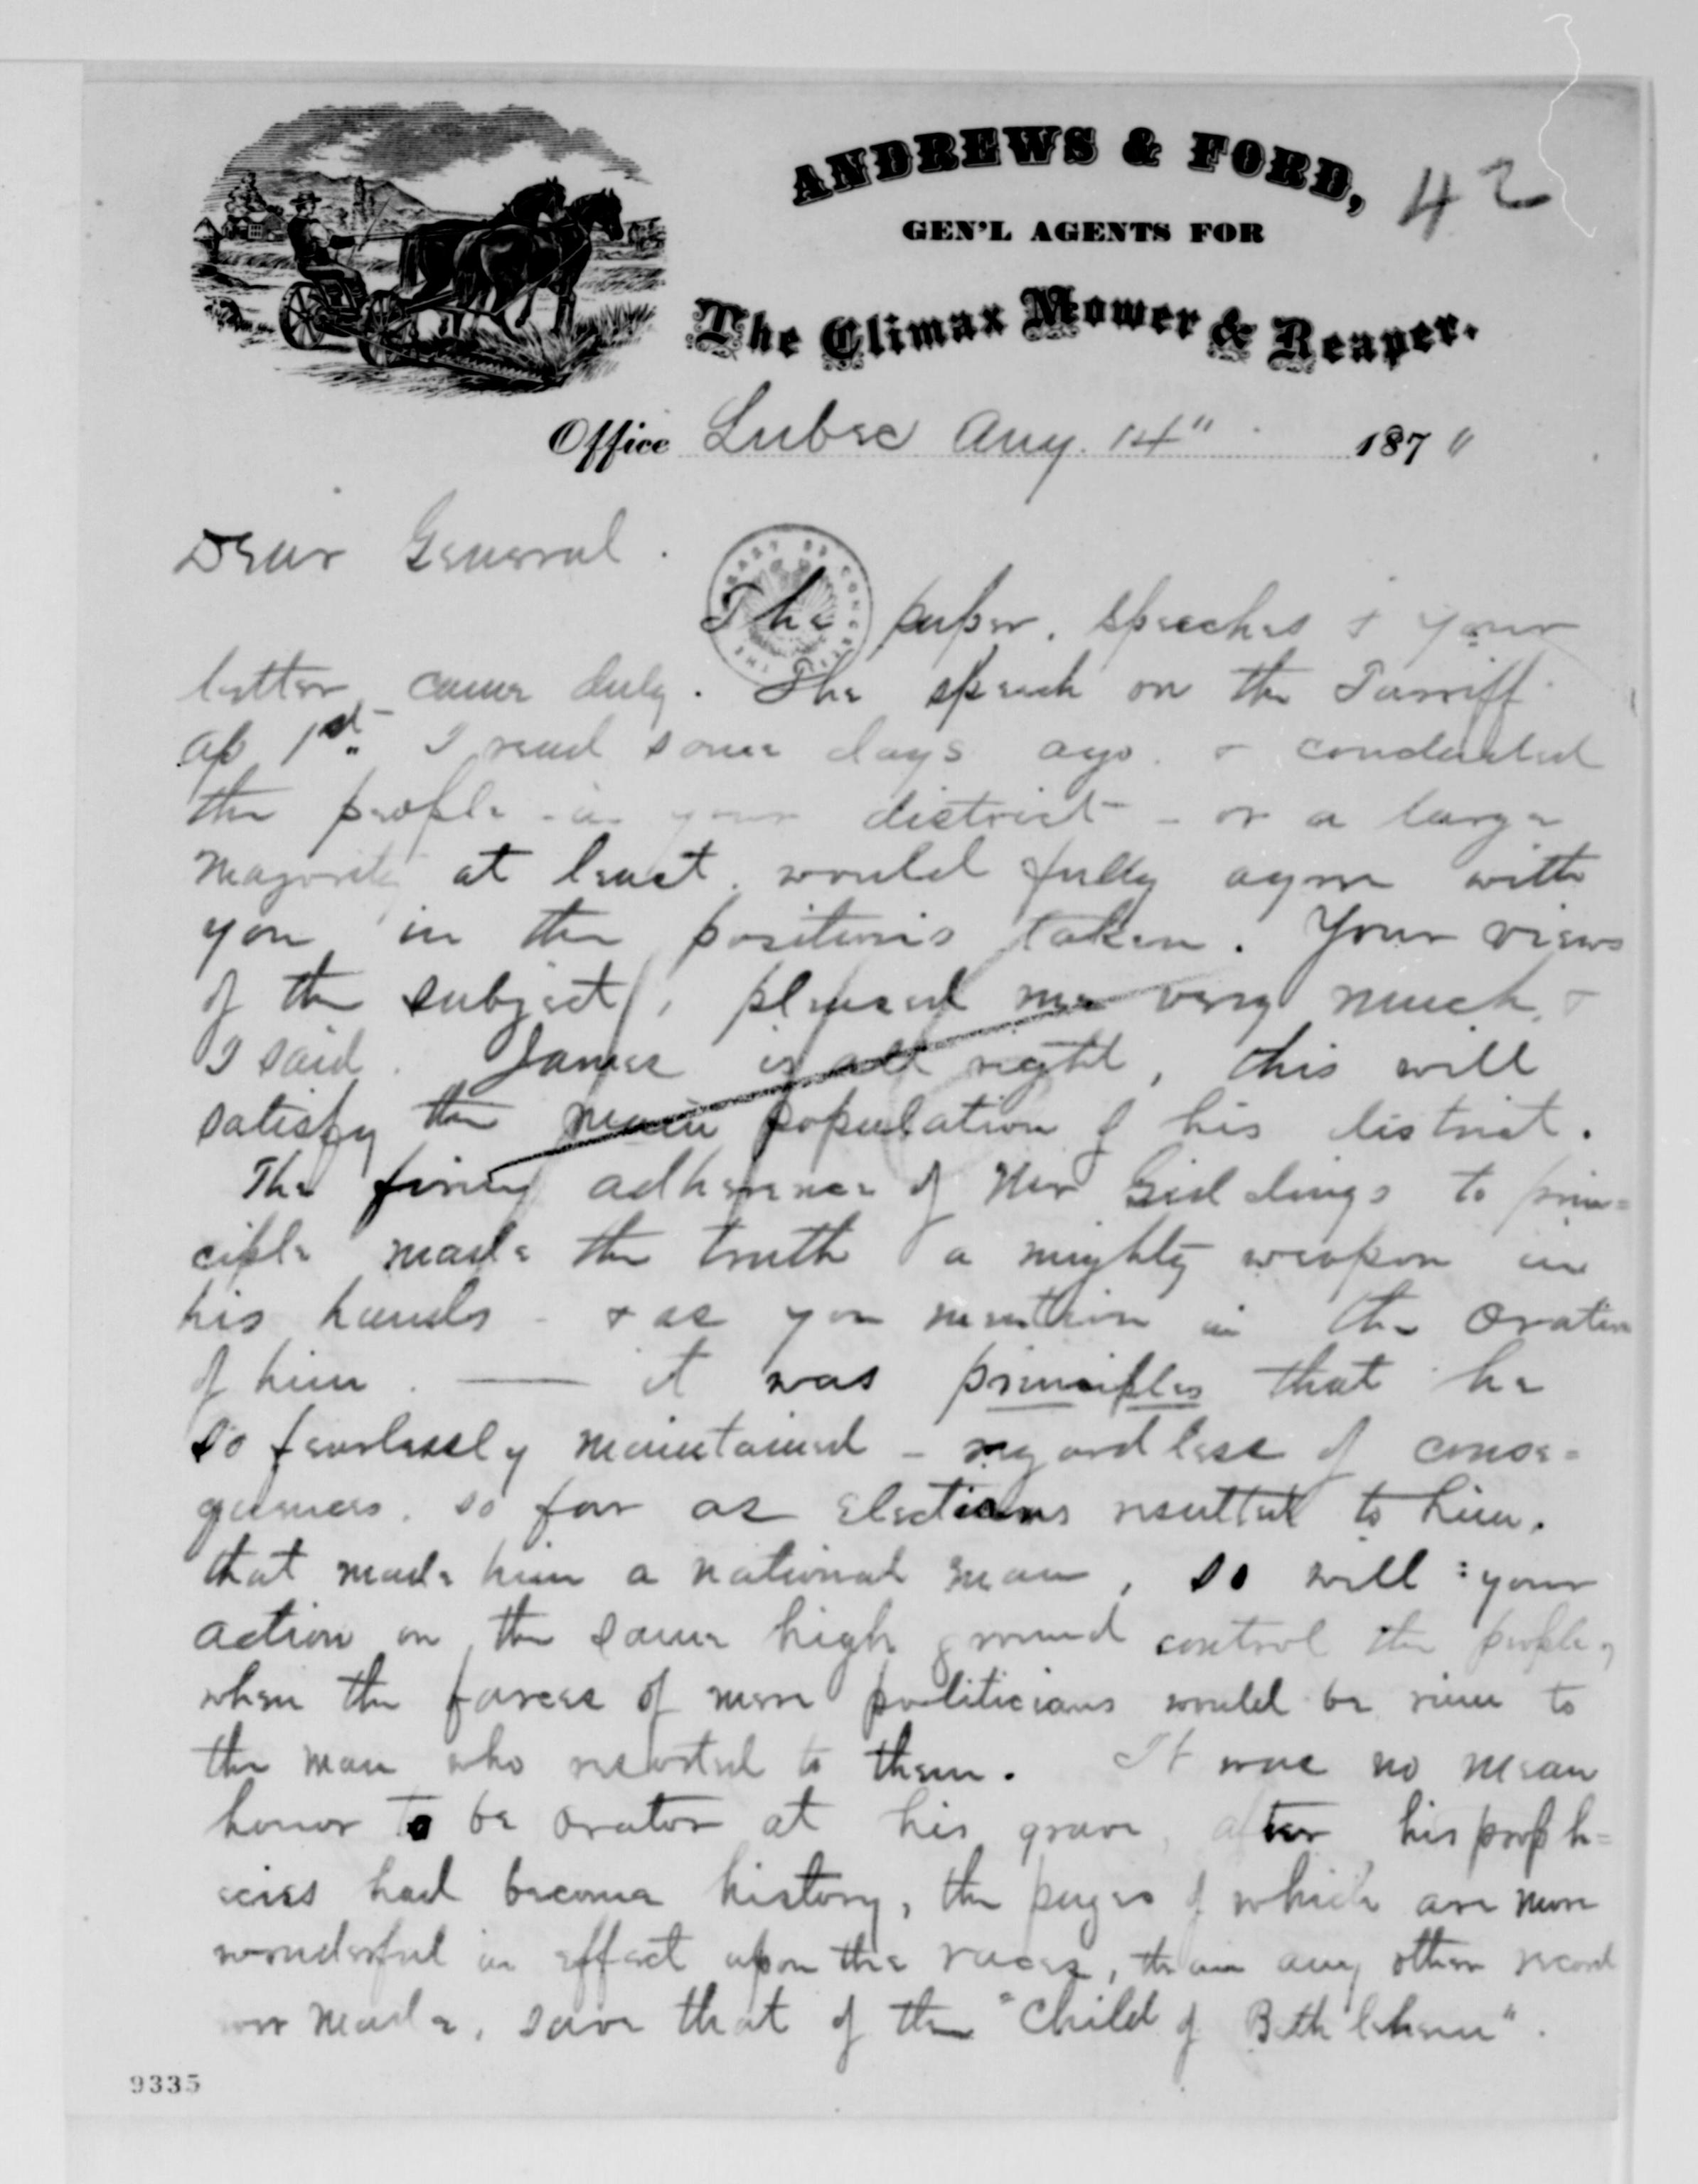 ANDREWS & FORD,
42
GEN'L AGENTS FOR
The Climax Mower & Reaper.
Office Lubec Aug. 14" 187"
Dear General.
The paper, speeches & your
letter came duly. The speech on the Tarriff
Ap 1st. I read some days ago. & concluded
the people in your district - or a large
majority at least, would fully agree with
you in the positions taken. Your views
of the subject, pleased me very much, &
I said. James is all right, this will
satisfy the main population of his district.
The firm adherence of Mr Giddings to prin=
ciple made the truth a mighty weapon in
his hands - & as you mention in the Oration
of him. — it was principles that he
so fearlessly maintained - regardless of conse=
quences. so far as elections resulted to him.
that made him a national man, so will your
action on the same high ground control the people,
when the forces of mere politicians would be ruin to
the man who resorted to them. It was no mean
honor to be orator at his grave, after his proph=
ecies had become history, the pages of which are more
wonderful in effect upon the races, than any other record
ever made, save that of the "Child of Bethlehem".
9335